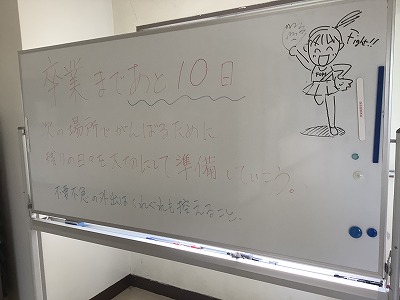 卒業まであと10日
Fight!!
次の場所でがんばるために
残りの日々を大切にして準備していこう。
不要不急の外出はくれぐれも控えること。